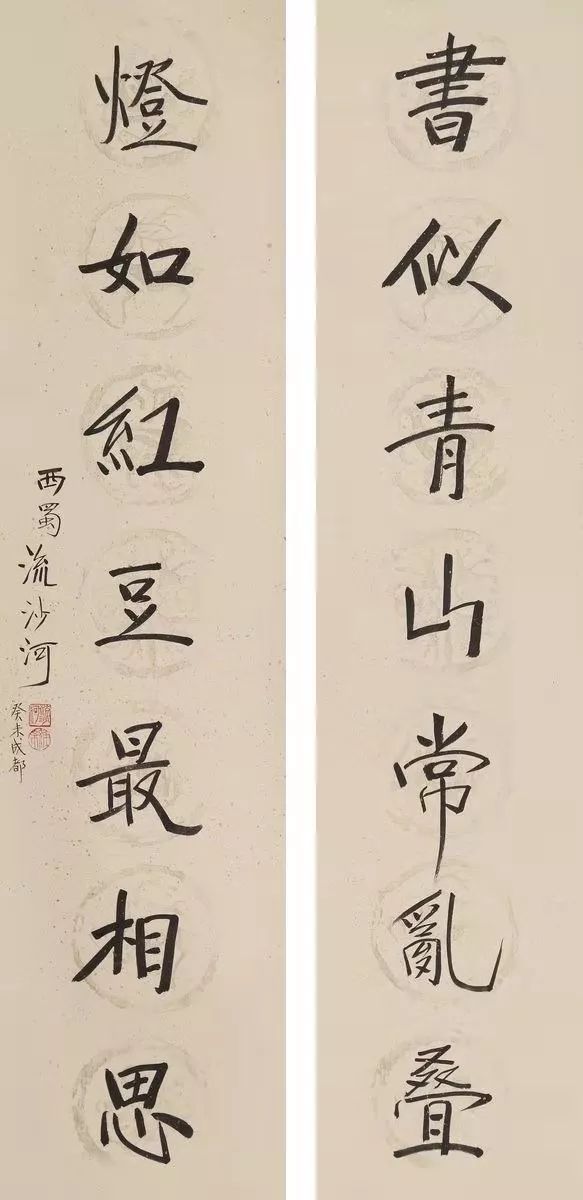 書似青山常亂叠
燈如紅豆最相思
西蜀流沙河
癸未成都